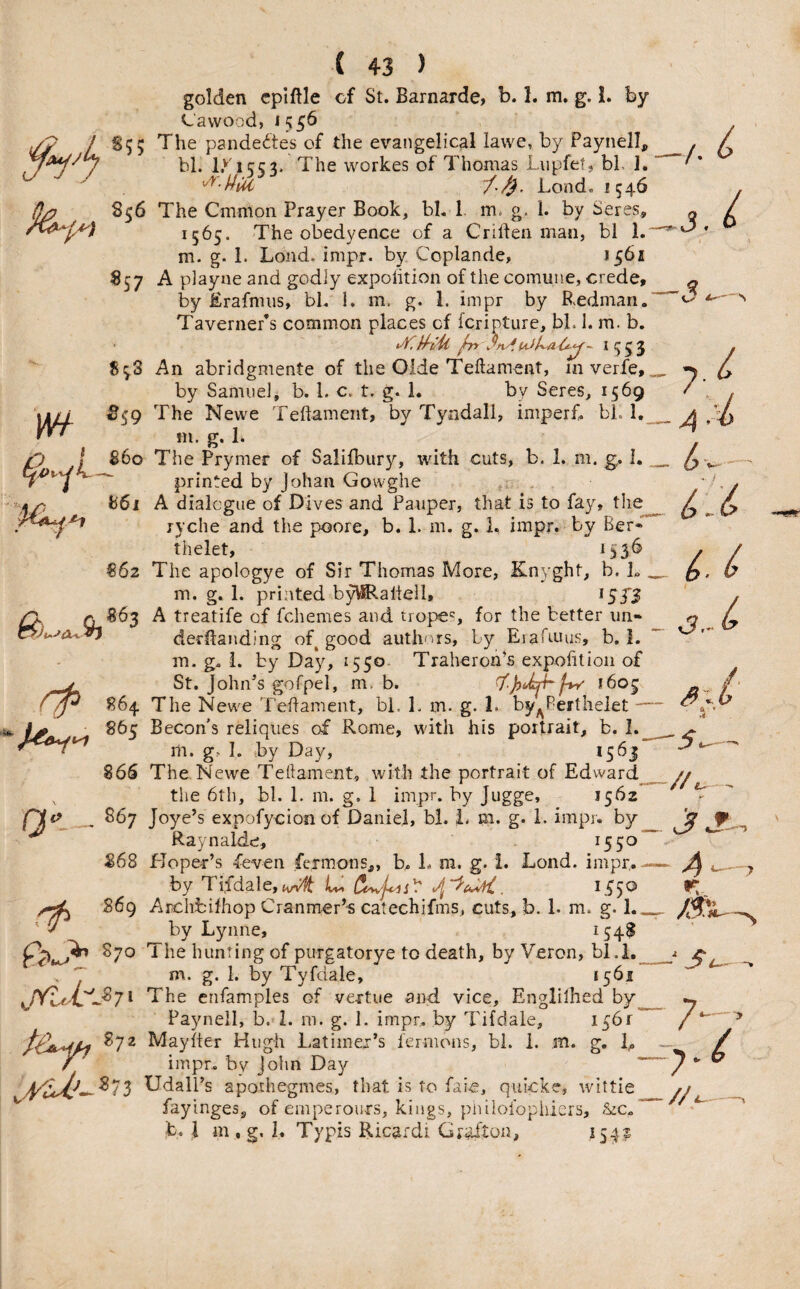 ( 43 )
golden epiſtle of St. Barnarde, b. l. m. g. l. by
Cawood, 1556
855 The pandectes of the evangelical lawe, by Paynell,
bl. l. 1553. The workes of Thomas Lupſet, bl. l.
Lond. 1546
856 The Cmmon Prayer Book, bl. l. m. g. l. by Seres,
1565. The obedyence of a Criſten man, bl l.
m. g. l. Lond. impr. by Coplande, 1561
857 A playne and godly expoſition of the comune, crede,
by Eraſmus, bl. l. m. g. l. impr by Redman.
Taverner's common places of ſcripture, bl. l. m. b.
1553
858 An abridgmente of the Olde Teſtament, in verſe,
by Samuel, b. l. c. t. g. l. by Seres, 1569
859 The Newe Teſtament, by Tyndall, imperf. bl. l.
m. g. l.
860 The Prymer of Saliſbury, with cuts, b. l. m. g. l.
printed by Johan Gowghe
861 A dialogue of Dives and Pauper, that is to ſay, the
ryche and the poore, b. l. m. g. l. impr. by Ber-
thelet, 1536
862 The apologye of Sir Thomas More, Knyght, b. l.
m. g. l. printed by Raſtell, 1533
863 A treatiſe of ſchemes and tropes, for the better un-
derſtanding of good authors, by Eraſmus, b. l.
m. g. l. by Day, 1550 Traheron's expoſition of
St. John's goſpel, m. b. 1605
864 The Newe Teſtament, bl. l. m. g. l. by Berthelet
865 Becon's reliques of Rome, with his portrait, b. l.
m. g. l. by Day, 1563
866 The Newe Teſtament, with the portrait of Edward
the 6th, bl. l. m. g. l impr. by Jugge, 1562
867 Joye's expoſycion of Daniel, bl. l. m. g. l. impr. by
Raynalde, 1550
868 Hoper's ſeven ſermons,, b. l. m. g. l. Lond. impr.
by Tiſdale, 1550
869 Archbiſhop Cranmer's catechiſms, cuts, b. l. m. g. l.
by Lynne, 1548
870 The hunting of purgatorye to death, by Veron, bl.l.
m. g. l. by Tyſdale, 1561
871 The enſamples of vertue and vice, Engliſhed by
Paynell, b. l. m. g. l. impr. by Tiſdale, 1561
872 Mayſter Hugh Latimer's ſermons, bl. l. m. g. l.
impr. by John Day
873 Udall's apothegmes, that is to ſaie, quicke, wittie
ſayinges, of emperours, kings, philoſophiers, &c.
b. l m . g. l. Typis Ricardi Grafton, 1542